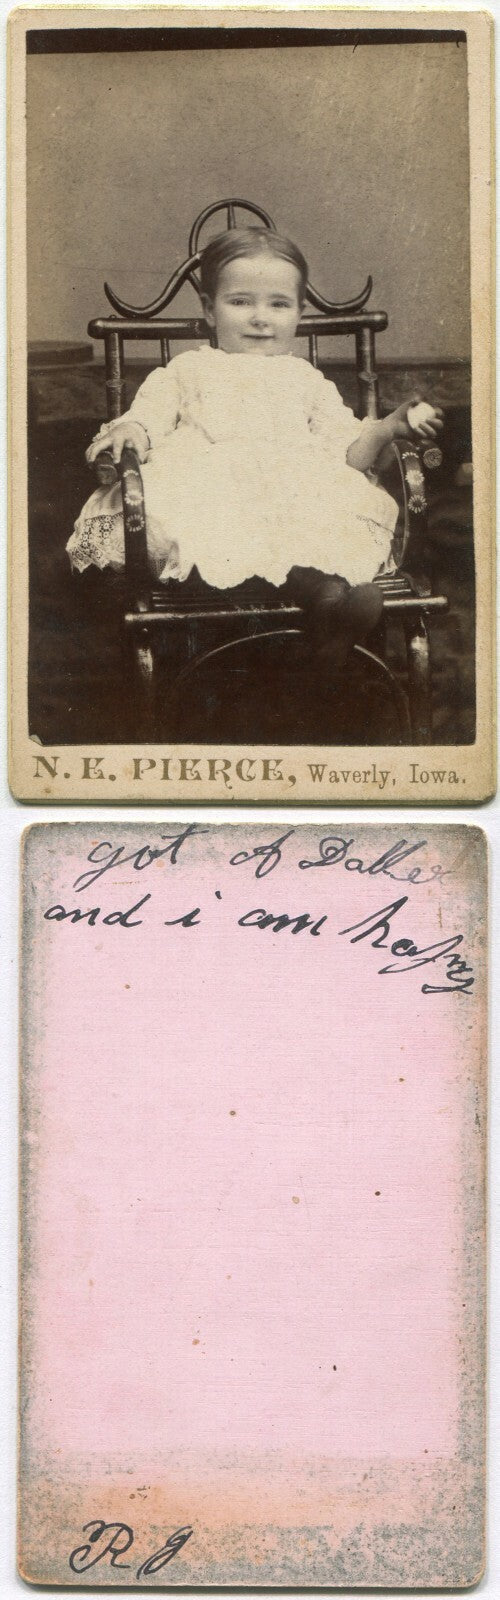 N. E. PIERCE, Waverly, Iowa.
got A Daller
and i am happy
R J